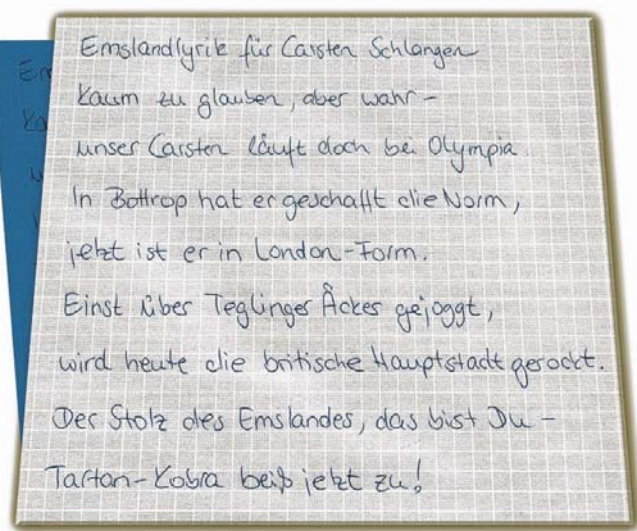 Emslandlyrik für Carsten Schlangen
Kaum zu glauben, aber wahr -
unser Carsten läuft doch bei Olympia.
In Bottrop hat er geschafft die Norm,
jetzt ist er in London-Form.
Einst über Teglinger Äcker gejoggt,
wird heute die britische Hauptstadt gerockt.
Der Stolz des Emslandes, das bist Du -
Tartan-Kobra beiß jetzt zu!